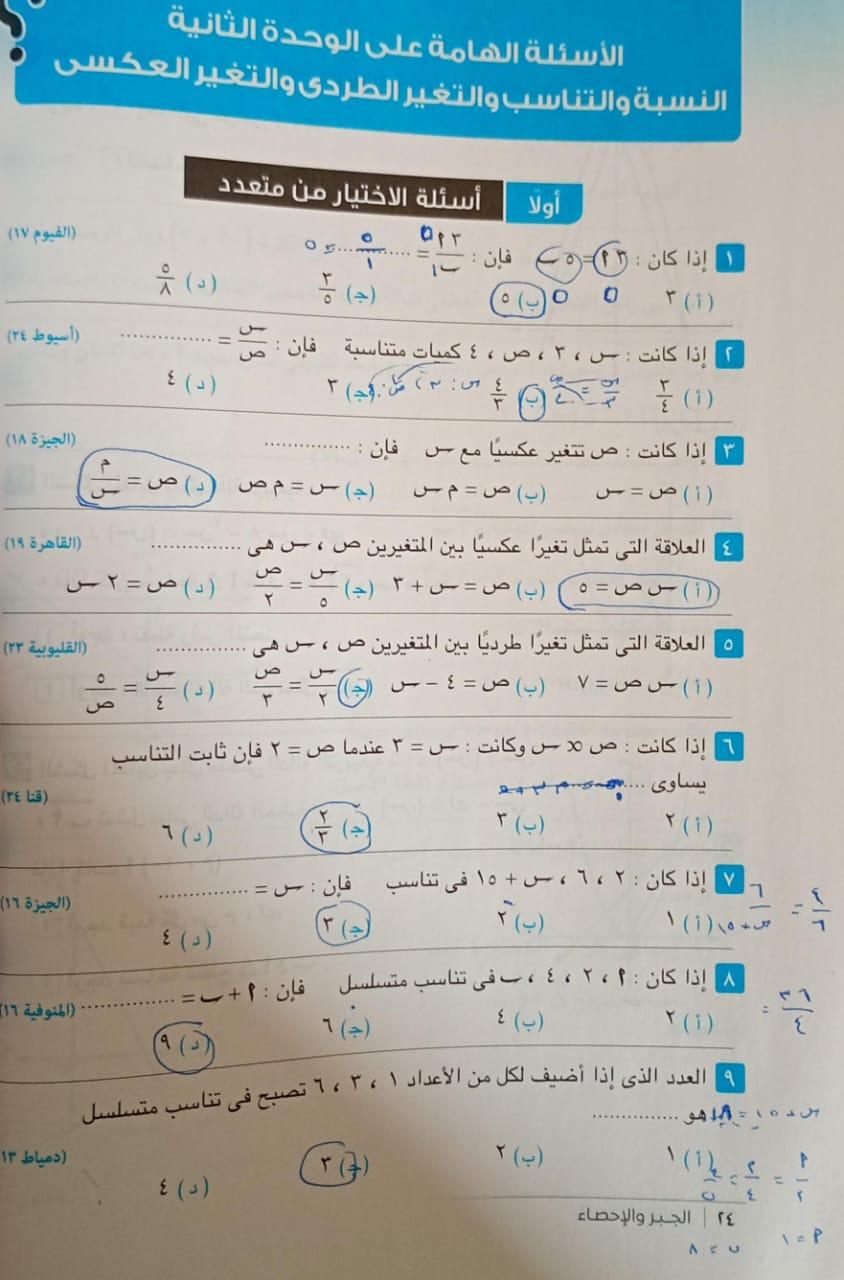 الأسئلة الهامة على الوحدة الثانية
النسبة والتناسب والتغير الطردى والتغير العكسى
أولًا أسئلة الاختيار من متعدد
١ إذا كان : ٣ م = ٥ ب فإن : ٣ م / ب = .......... (الفيوم ١٧)
(أ) ٣ (ب) ٥ (ج) ٣/٥ (د) ٥/٨
٢ إذا كانت : س ، ٣ ، ص ، ٤ كميات متناسبة فإن : س/ص = .............. (أسيوط ٢٤)
(أ) ٣/٤ (ب) ٤/٣ (ج) ٣ (د) ٤
٣ إذا كانت : ص تتغير عكسيًا مع س فإن : .............. (الجيزة ١٨)
(أ) ص = س (ب) ص = م س (ج) س = م ص (د) ص = م/س
٤ العلاقة التى تمثل تغيرًا عكسيًا بين المتغيرين ص ، س هى .............. (القاهرة ١٩)
(أ) س ص = ٥ (ب) ص = س + ٣ (ج) س/٥ = ص/٢ (د) ص = ٢ س
٥ العلاقة التى تمثل تغيرًا طرديًا بين المتغيرين ص ، س هى .............. (القليوبية ٢٣)
(أ) س ص = ٧ (ب) ص = ٤ – س (ج) س/٢ = ص/٣ (د) س/٤ = ٥/ص
٦ إذا كانت : ص ∝ س وكانت : س = ٣ عندما ص = ٢ فإن ثابت التناسب
يساوى .............. (قنا ٢٤)
(أ) ٢ (ب) ٣ (ج) ٢/٣ (د) ٦
٧ إذا كان : ٢ ، ٦ ، س + ١٥ فى تناسب فإن : س = .............. (الجيزة ١٦)
(أ) ١ (ب) ٢ (ج) ٣ (د) ٤
٦/س+١٥ = ٢/٦
٨ إذا كان : م ، ٢ ، ٤ ، ب فى تناسب متسلسل فإن : م + ب = .............. (المنوفية ١٦)
(أ) ٢ (ب) ٤ (ج) ٦ (د) ٩
= ٣٦
٩ العدد الذى إذا أضيف لكل من الأعداد ١ ، ٣ ، ٦ تصبح فى تناسب متسلسل
هو .............. (دمياط ١٣)
س + ١٥ = ١٨
(أ) ١ (ب) ٢ (ج) ٣ (د) ٤
م/٢ = ٢/٤ = ٤/ب
٢٤ | الجبر والإحصاء
م = ١ ب = ٨